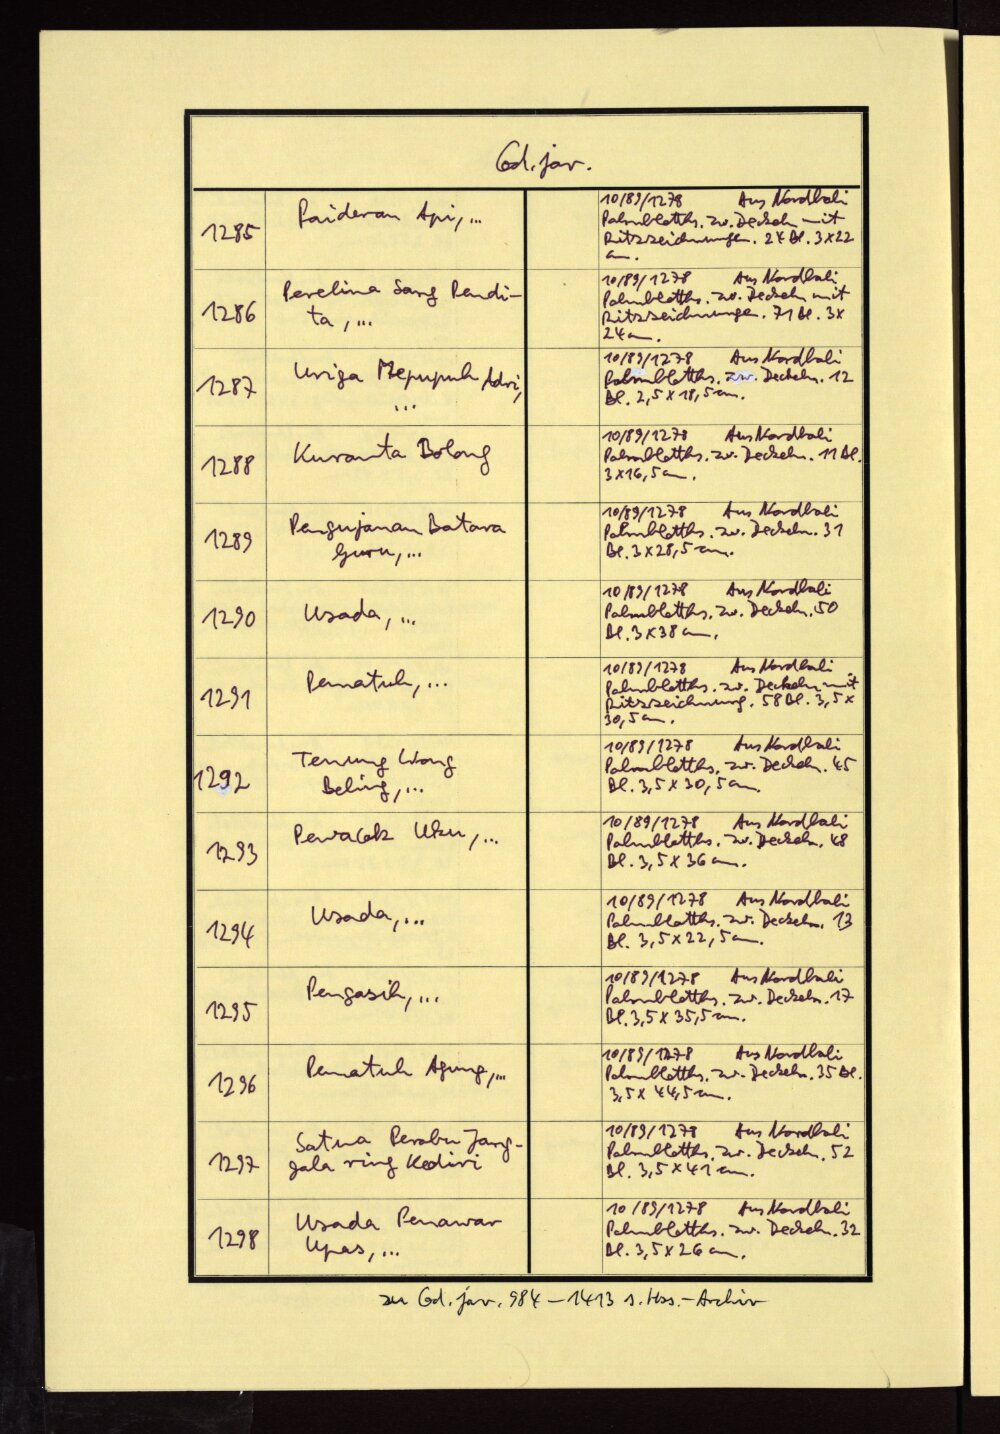 Cod. jav.
1285
Paideran Api, ...
10/89/1278 Aus Nordbali
Palmblatths. zw. Deckeln mit
Ritzzeichnungen. 24 Bl. 3x22
cm.
1286
Perelina Sang Pendi-
ta, ...
10/89/1278 Aus Nordbali
Palmblatths. zw. Deckeln mit
Ritzzeichnungen. 71 Bl. 3x
24 cm.
1287
Uriga Mepupuh Adri,
...
10/89/1278 Aus Nordbali
Palmblatths. zw. Deckeln. 12
Bl. 2,5 x 18,5 cm.
1288
Kuranta Bolong
10/89/1278 Aus Nordbali
Palmblatths. zw. Deckeln. 11 Bl.
3x16,5 cm.
1289
Pengujanan Batara
Guru, ...
10/89/1278 Aus Nordbali
Palmblatths. zw. Deckeln. 31
Bl. 3x28,5 cm.
1290
Usada, ...
10/89/1278 Aus Nordbali
Palmblatths. zw. Deckeln. 50
Bl. 3x38 cm.
1291
Pematuh, ...
10/89/1278 Aus Nordbali
Palmblatths. zw. Deckeln mit
Ritzzeichnung. 58 Bl. 3,5 x
30,5 cm.
1292
Tenung Wong
Beling, ...
10/89/1278 Aus Nordbali
Palmblatths. zw. Deckeln. 45
Bl. 3,5 x 30,5 cm.
1293
Pewacak Uku, ...
10/89/1278 Aus Nordbali
Palmblatths. zw. Deckeln. 48
Bl. 3,5 x 36 cm.
1294
Usada, ...
10/89/1278 Aus Nordbali
Palmblatths. zw. Deckeln. 13
Bl. 3,5x22,5 cm.
1295
Pengasih, ...
10/89/1278 Aus Nordbali
Palmblatths. zw. Deckeln. 17
Bl. 3,5 x 35,5 cm.
1296
Pematuh Agung, ...
10/89/1278 Aus Nordbali
Palmblatths. zw. Deckeln. 35 Bl.
3,5 x 44,5 cm.
1297
Satua Perabu Jang-
gala ring Kediri
10/89/1278 Aus Nordbali
Palmblatths. zw. Deckeln. 52
Bl. 3,5 x 41 cm.
1298
Usada Penawar
Upas, ...
10/89/1278 Aus Nordbali
Palmblatths. zw. Deckeln. 32
Bl. 3,5x26 cm.
zu Cod. jav. 984 – 1413 s. Hss.-Archiv